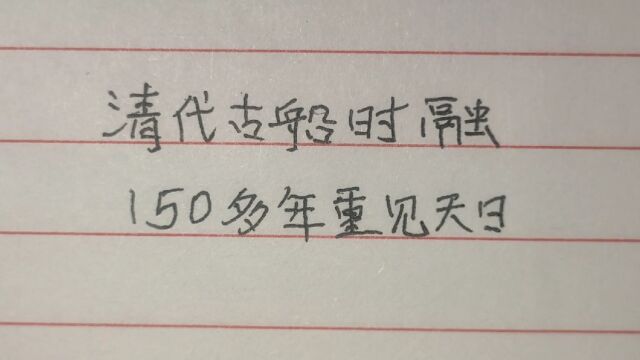 清代古船时融
150多年重见天日